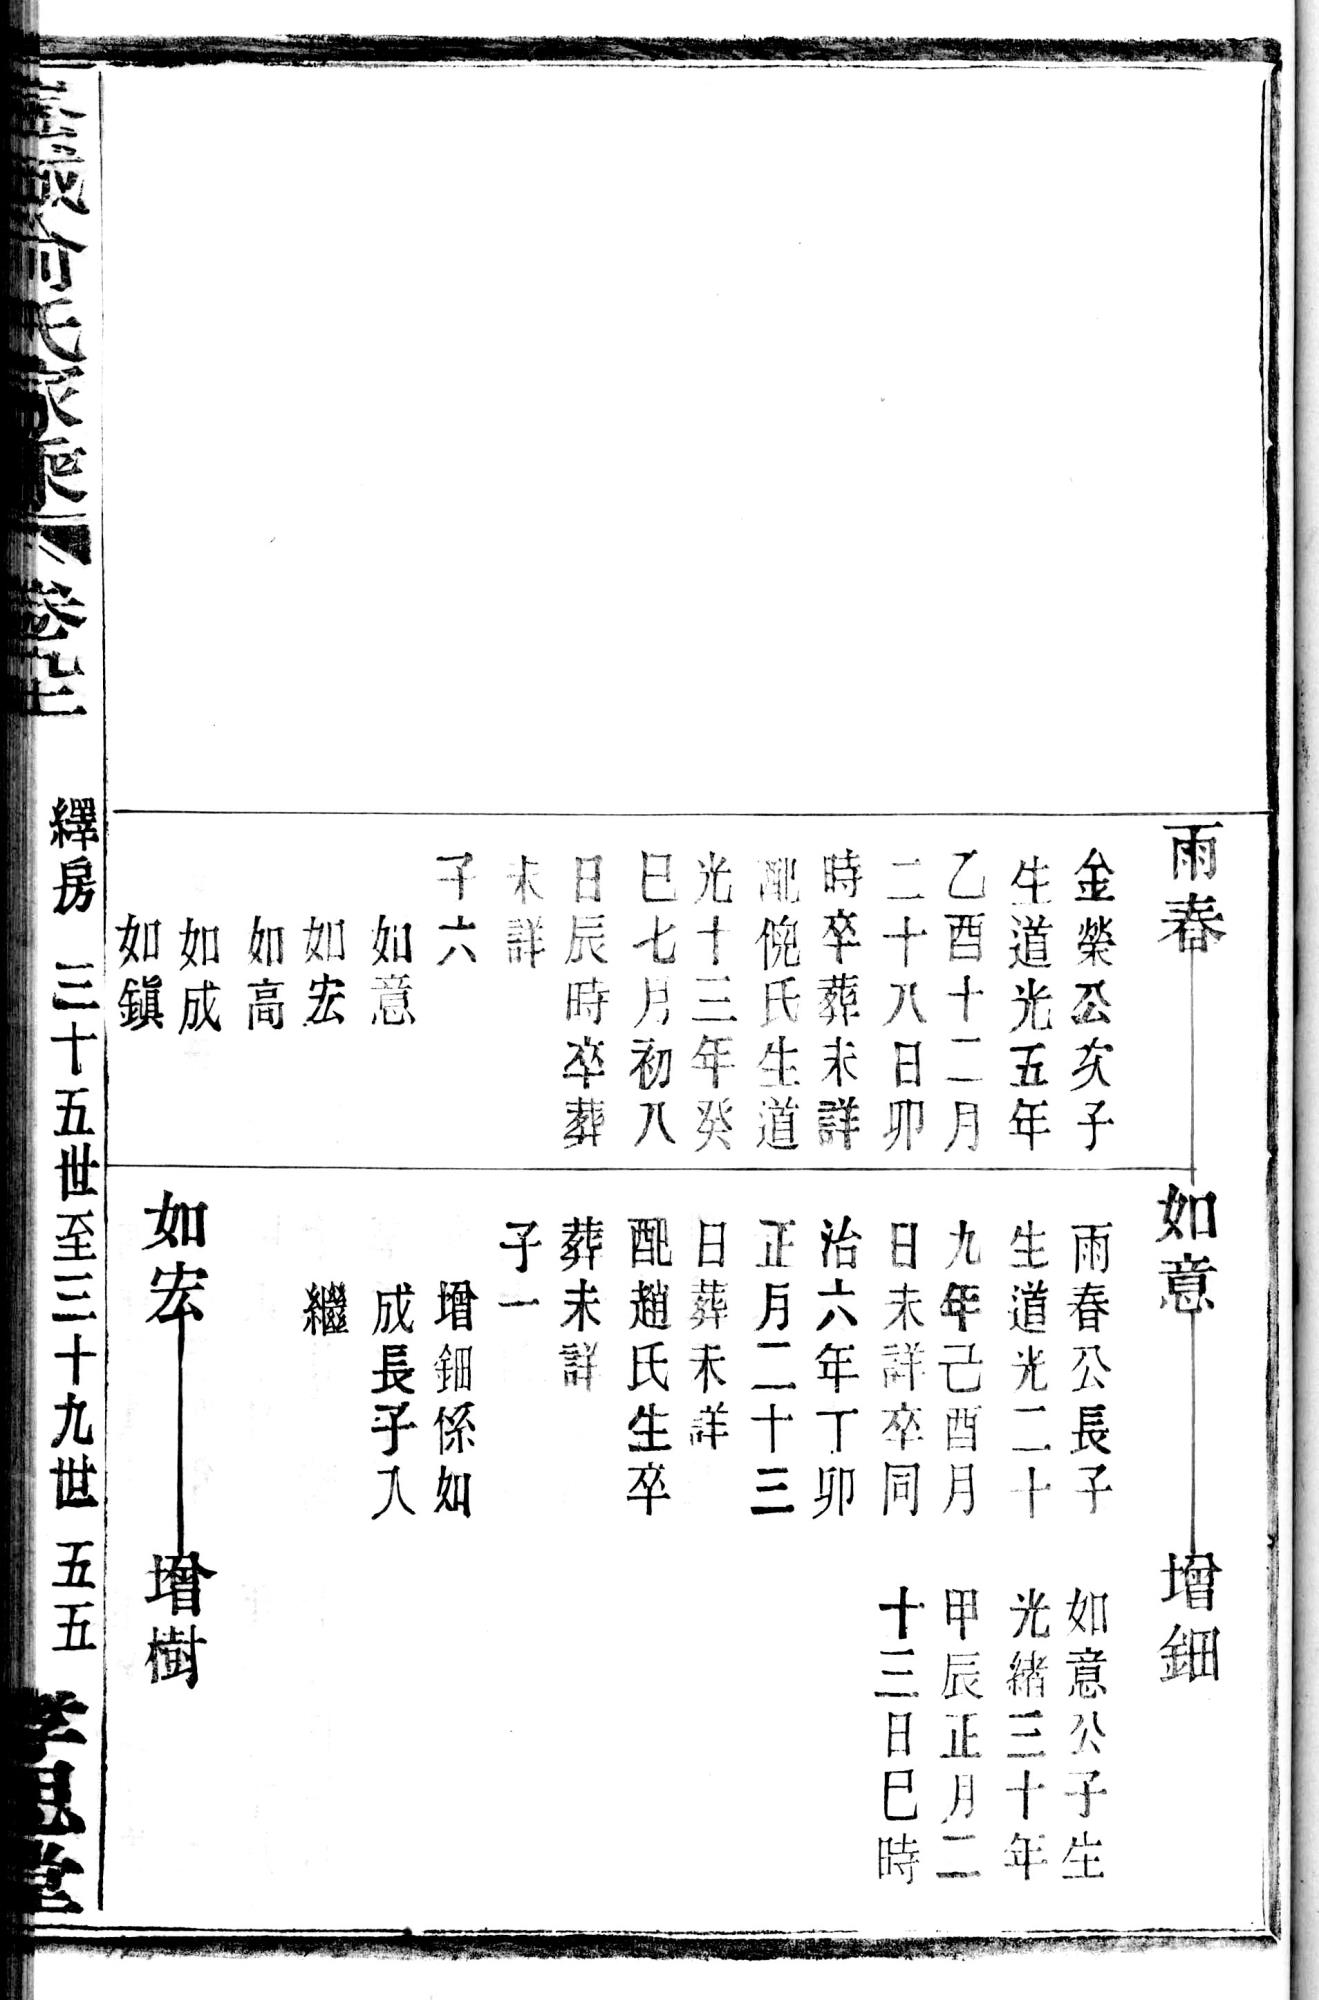 雨春
金榮公次子
生道光五年
乙酉十二月
二十八日卯
時卒葬未詳
配倪氏生道
光十三年癸
巳七月初八
日辰時卒葬
未詳
子六
如意
如宏
如高
如成
如鎮
如意
雨春公長子
生道光二十
九年己酉月
日未詳卒同
治六年丁卯
正月二十三
日葬未詳
配趙氏生卒
葬未詳
子一
增鈿係如
成長子入
繼
如宏
增鈿
如意公子生
光緒三十年
甲辰正月二
十三日巳時
增樹
俞氏家乘 卷九十
繹房 三十五世至三十九世 五五
孝思堂